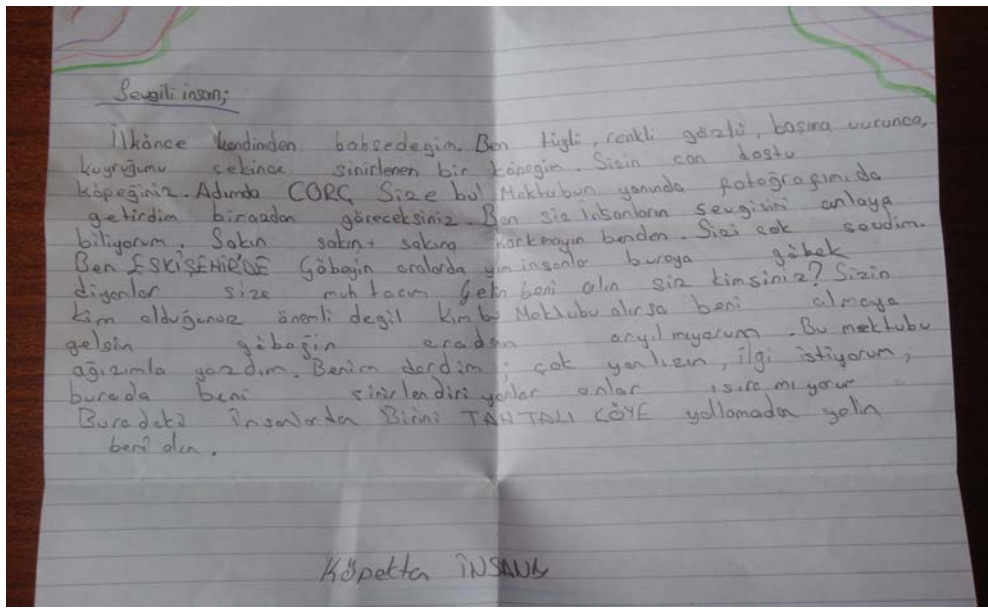 Sevgili insan;
İlkönce kendimden bahsedegim. Ben tüyli, renkli gözlü, başıma vurunca,
kuyruğumu çekince sinirlenen bir köpeğim. Sizin can dostu
köpeğiniz. Adımda CORÇ Size bu Mektubun yanında fotoğrafımıda
getirdim birazdan göreceksiniz. Ben siz insanların sevgisini anlaya
biliyorum. Sakın sakın sakına korkmayın benden. Sizi çok sevdim.
Ben ESKİŞEHİR'DE Göbeğin oralarda yım insanlar buraya göbek
diyorlar size muhtacım Gelin beni alın siz kimsiniz? Sizin
kim olduğunuz önemli degil kim bu Mektubu alırsa beni almaya
gelsin göbeğin oradan aryılmıyorum. Bu mektubu
ağızımla yazdım. Benim derdim; çok yanlızın, ilgi istiyorum,
burada beni sinirlendiriyorlar onlar ısıra mıyorur
Buradaki insanlardan Birini TAHTALI KÖYE yollamadan gelin
beni alın.
Köpekten İNSANA